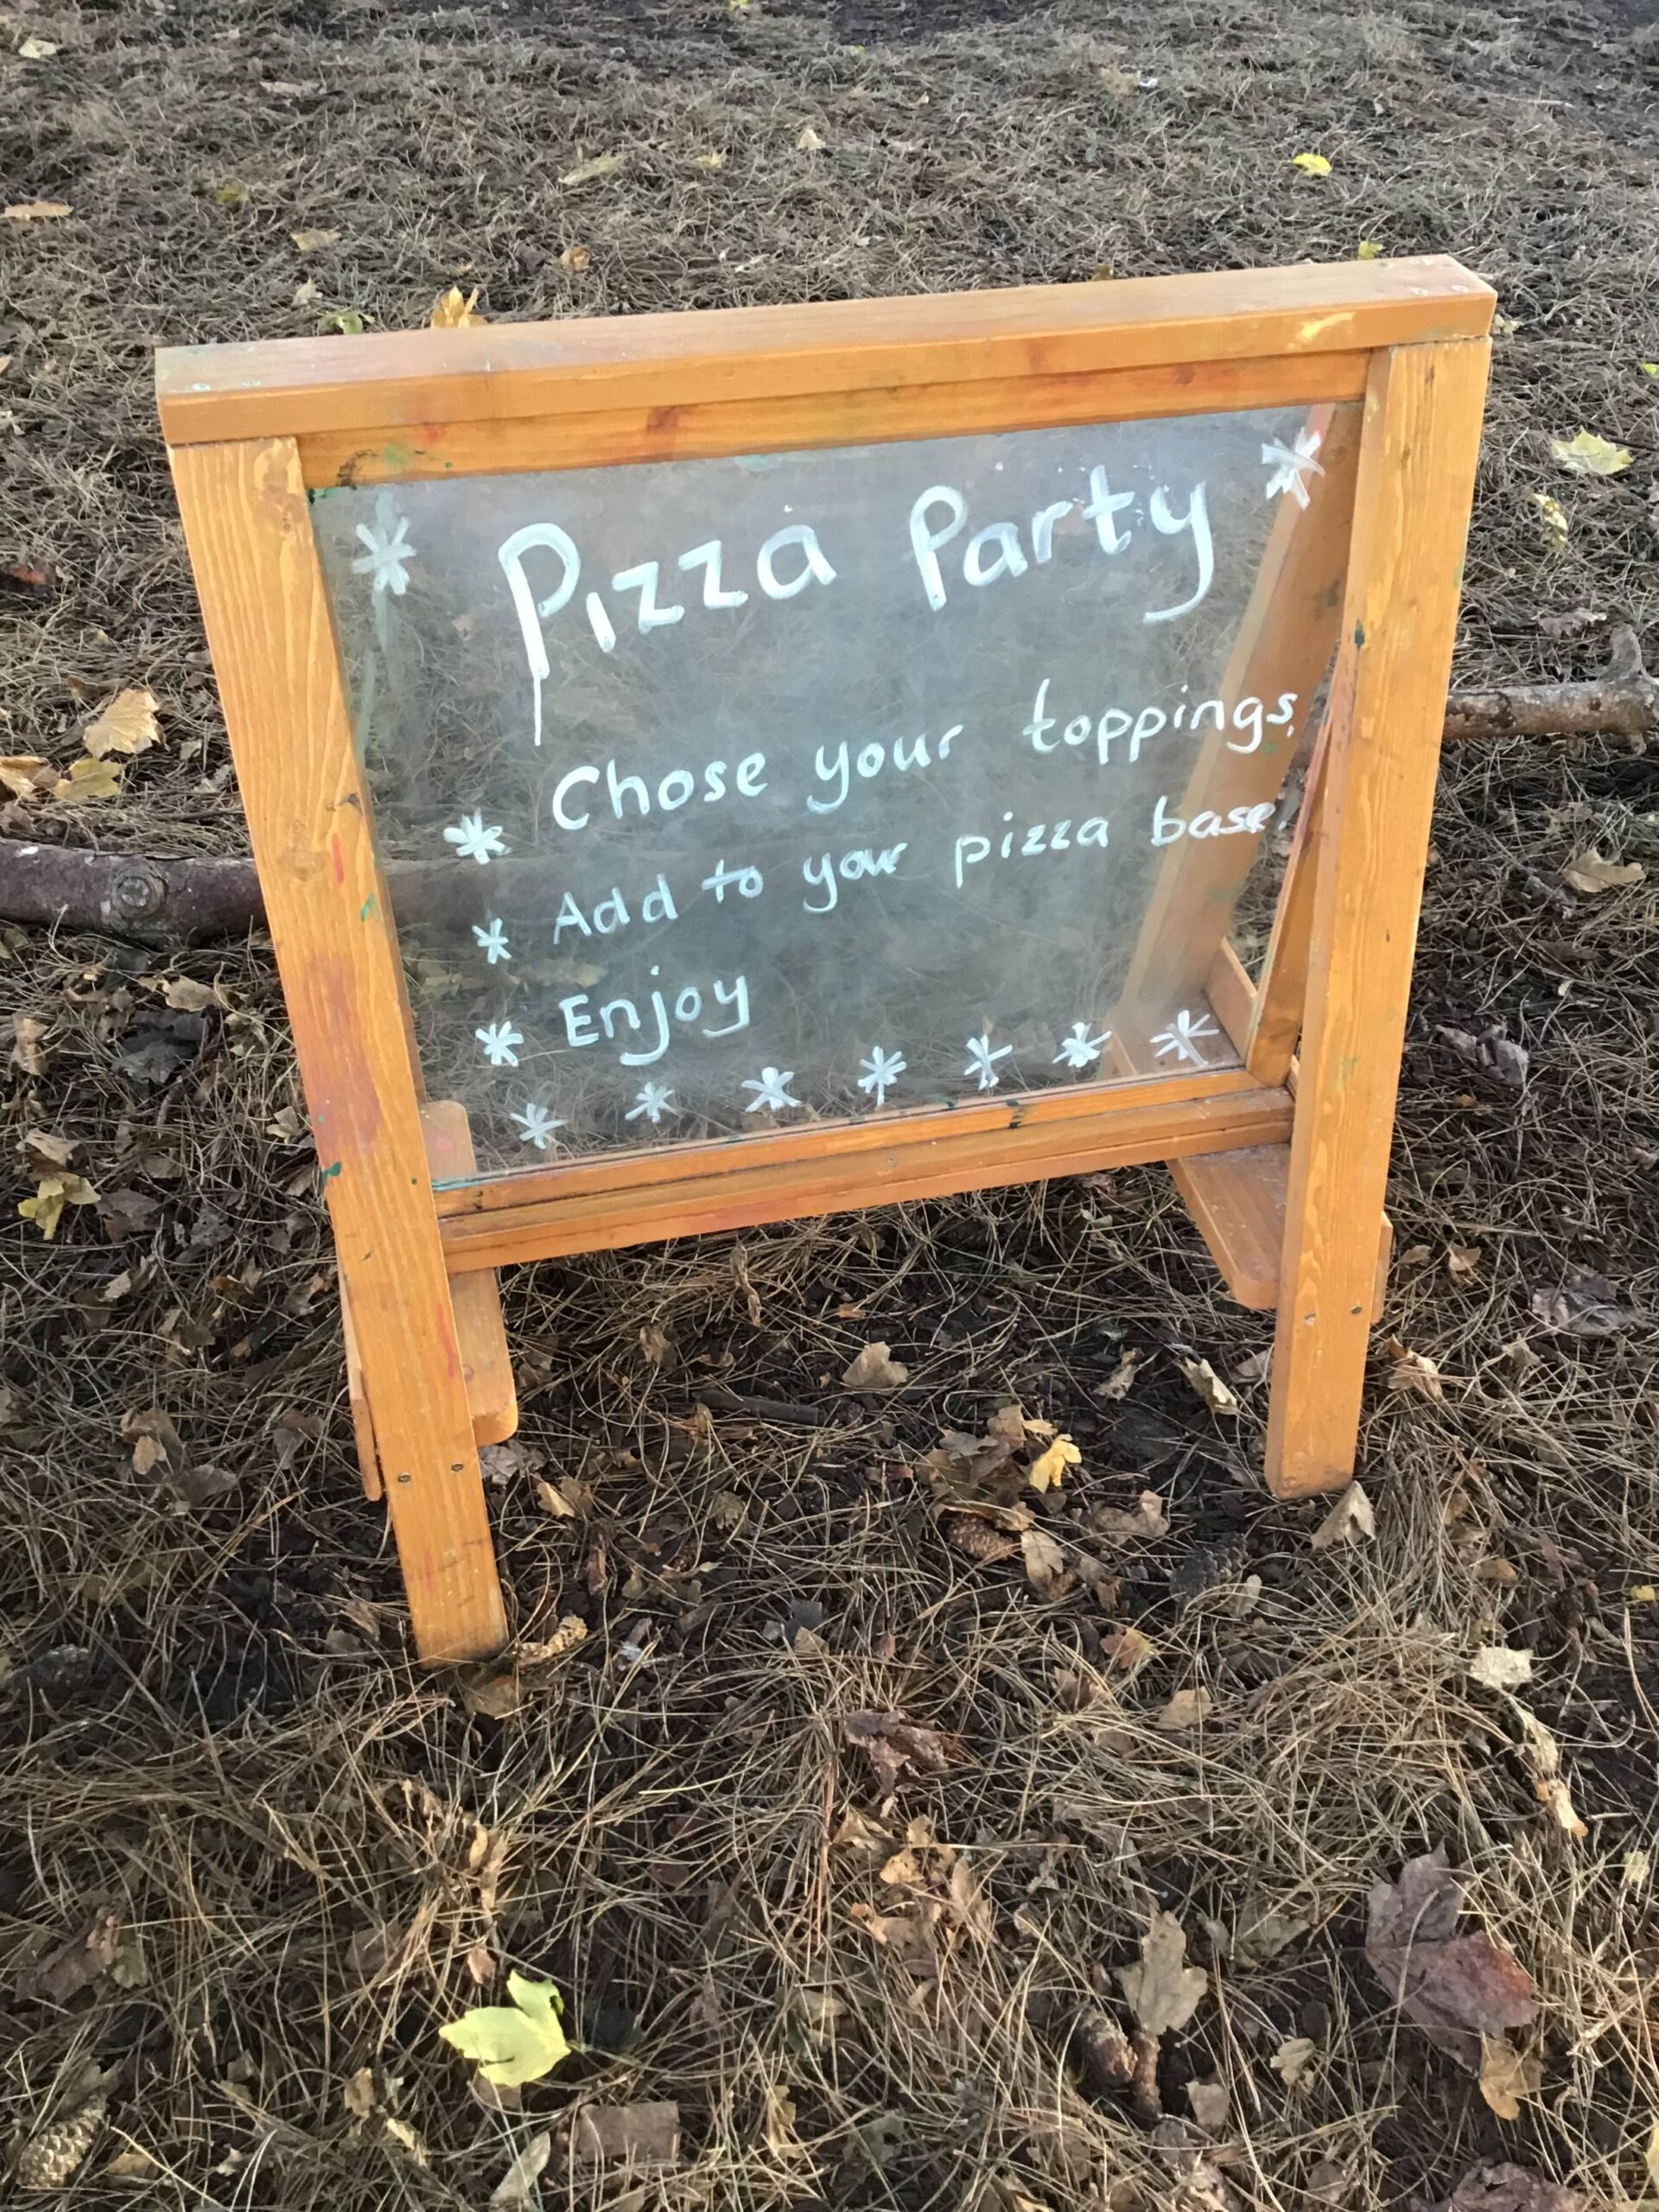 * Pizza Party *
* Chose your toppings.
* Add to your pizza base.
* Enjoy
* * * * * * *